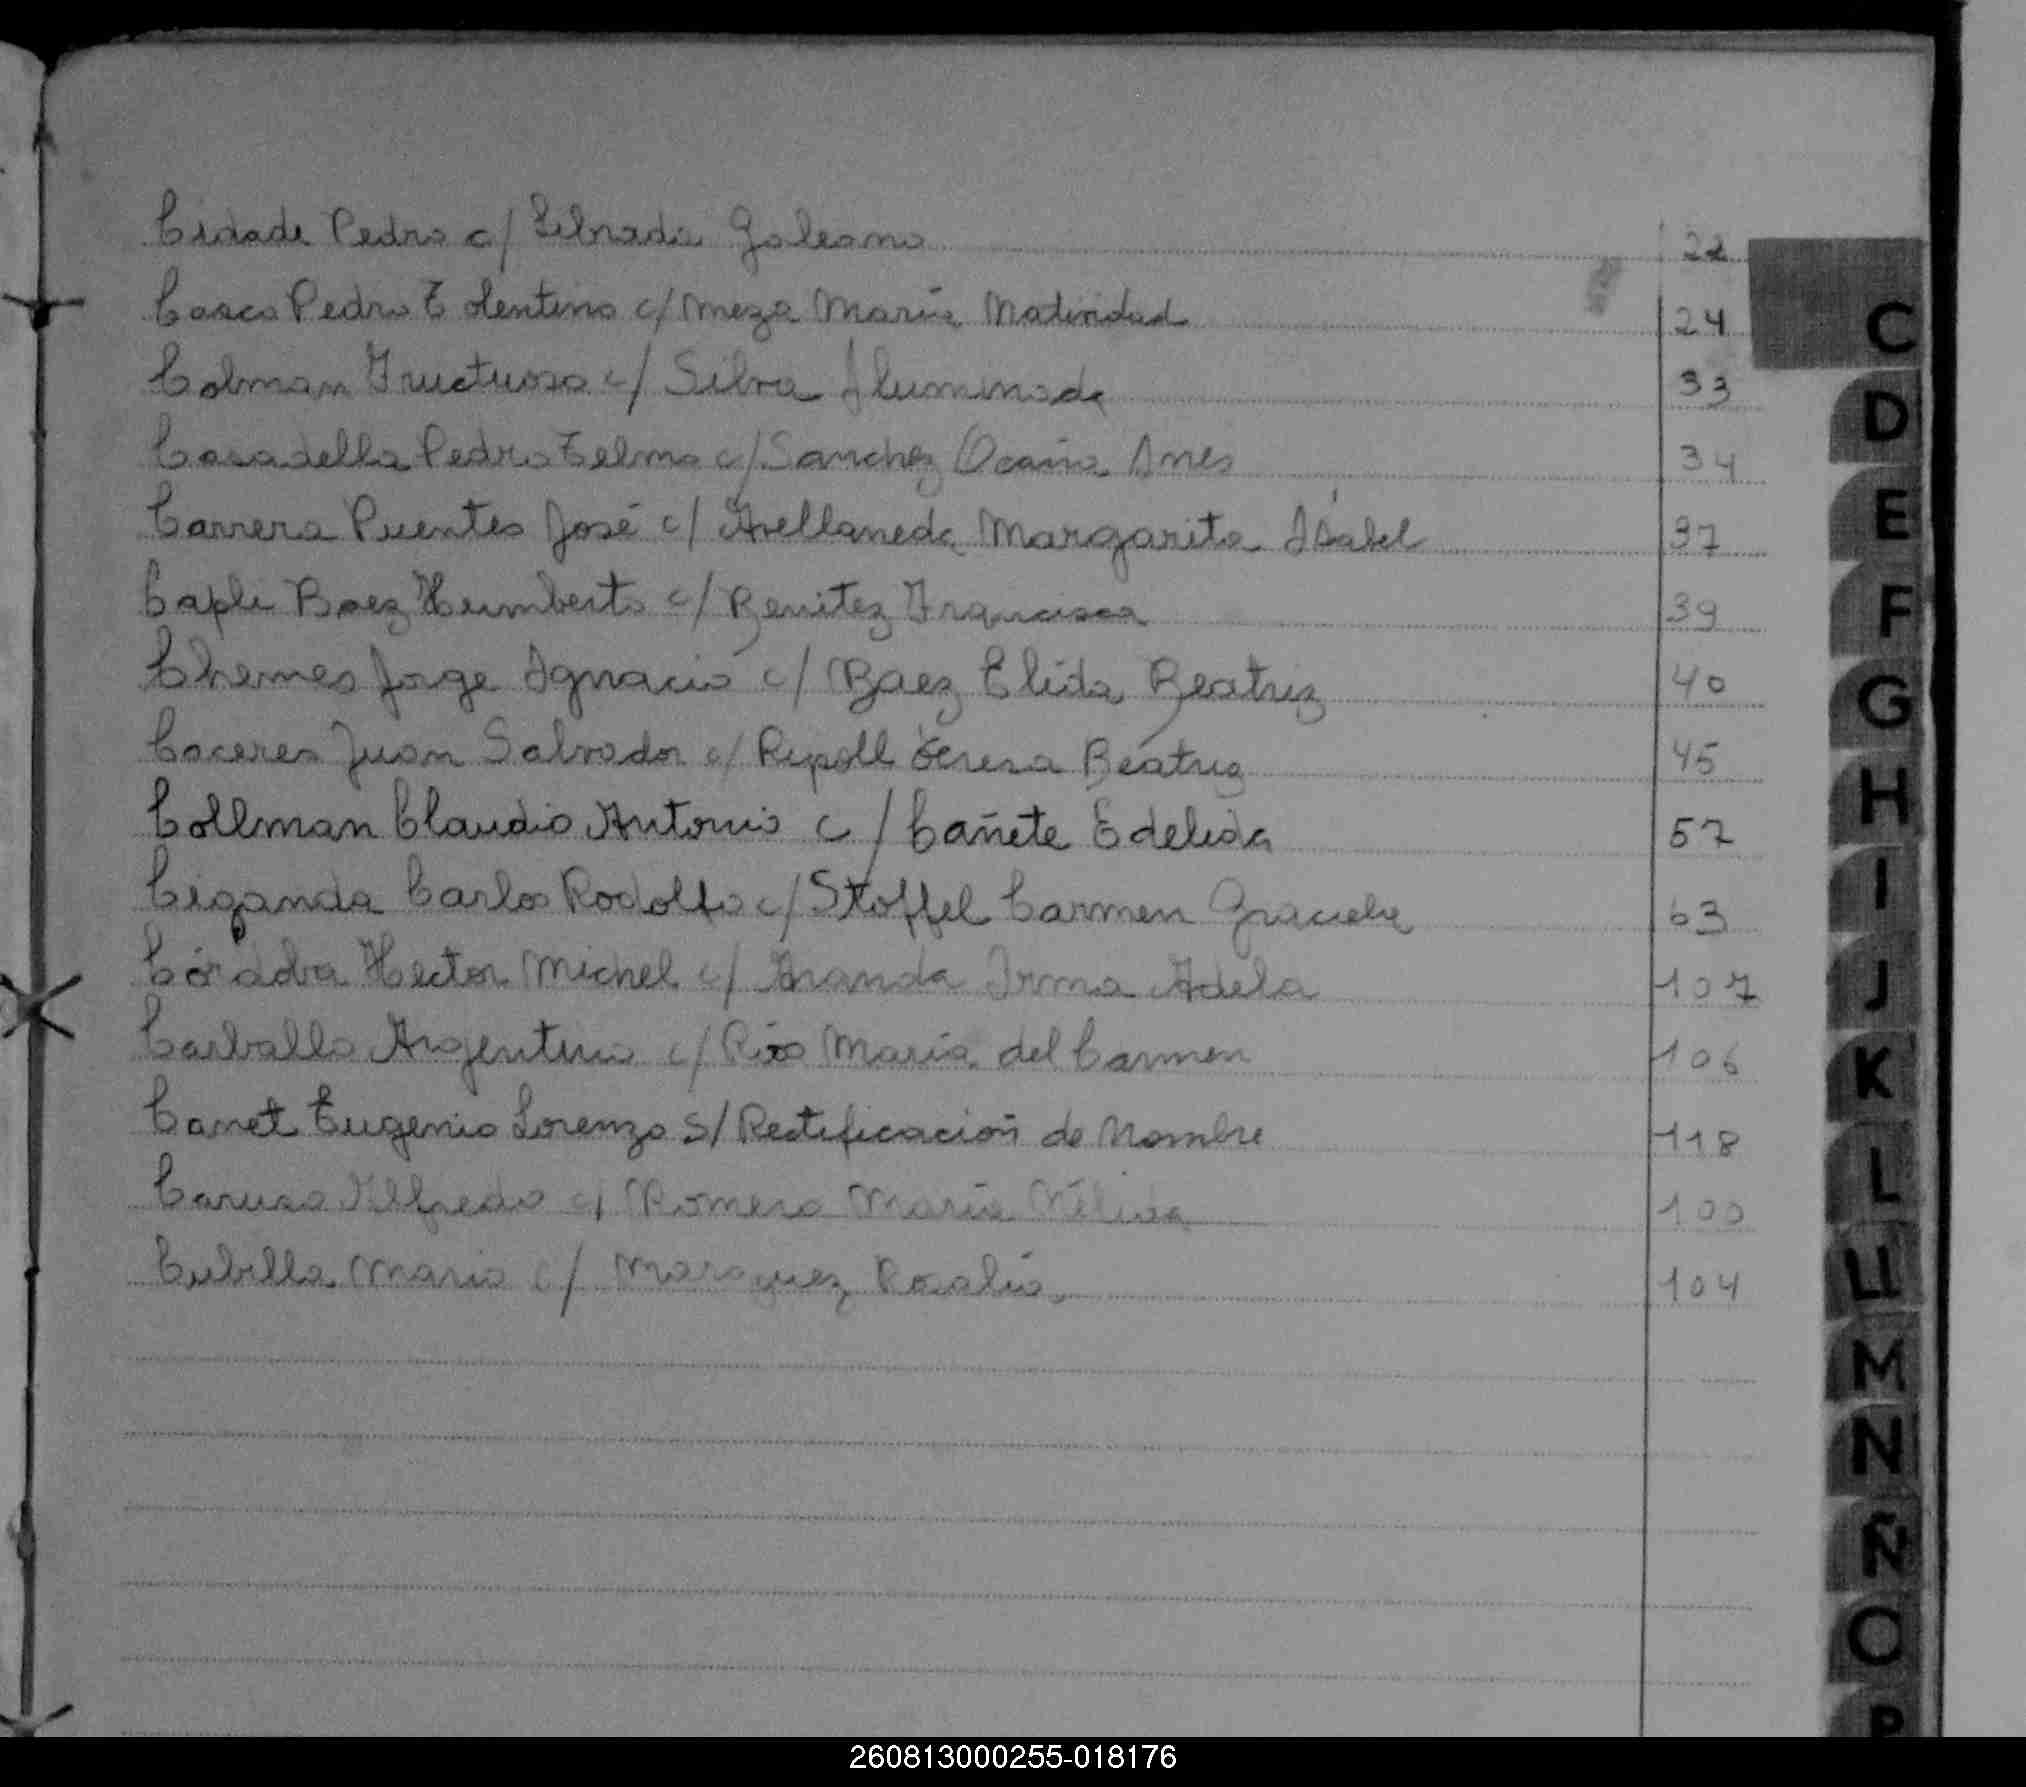 Cidade Pedro c/ Librada Galeano 22
Casco Pedro Tolentino c/ Meza María Natividad 24
Colman Fructuoso c/ Silva Iluminada 33
Casadella Pedro Telmo c/ Sanchez Ocaña Ines 34
Carrera Puentes José c/ Avellaneda Margarita Isabel 37
Capli Baez Humberto c/ Benitez Francisca 39
Chemes Jorge Ignacio c/ Baez Elida Beatriz 40
Caceres Juan Salvador c/ Ripoll Teresa Beatriz 45
Collman Claudio Antonio c/ Cañete Edelida 57
Ciganda Carlos Rodolfo c/ Stoffel Carmen Graciela 63
Córdoba Hector Michel c/ Aranda Irma Adela 107
Carballo Argentino c/ Rios María del Carmen 106
Canet Eugenio Lorenzo s/ Rectificación de Nombre 118
Caruso Alfredo c/ Romero María Nélida 100
Cubilla Mario c/ Marquez Rosalía 104
C
D
E
F
G
H
I
J
K
L
LL
M
N
Ñ
O
P
260813000255-018176